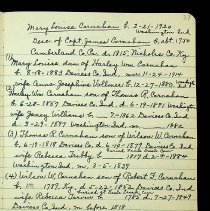 Mary Louise Carnahan b. 2-21-1920
Washington Ind
Desc. of Capt. James Carnahan b. abt. 1750
Cumberland Co. Pa. d. 1815 Nicholas Co. Ky
(1) Mary Louise dau of Harley Wm Carnahan
b. 8-18-1883 Daviess Co. Ind mar. 11-24-1914
wife Anna Josephine Vollmer b. 12-27-1880
(2) Harley Wm Carnahan son of Thomas R. Carnahan
b. 6-28-1857 Daviess Co. Ind d. 6-19-1891 Washington
wife Jenny Williams b. 7-1862 Daviess Co. Ind
d. 2-29-1891 Washington Ind mar. 1882
(3) Thomas R. Carnahan son of Wilson W. Carnahan
b. 6-19-1818 Daviess Co. Ind d. 6-10-1899 Daviess Co. Ind
wife Rebecca 1819 d. 2-9-1884
Washington Ind m. 3-5-1839
(4) Wilson W. Carnahan son of Robert F. Carnahan
b. 1787 Ky d. 5-22-1862 Daviess Co. Ind
wife Rebecca b. 1782 d. 7-27-1849
Daviess Co. Ind m. before 1818